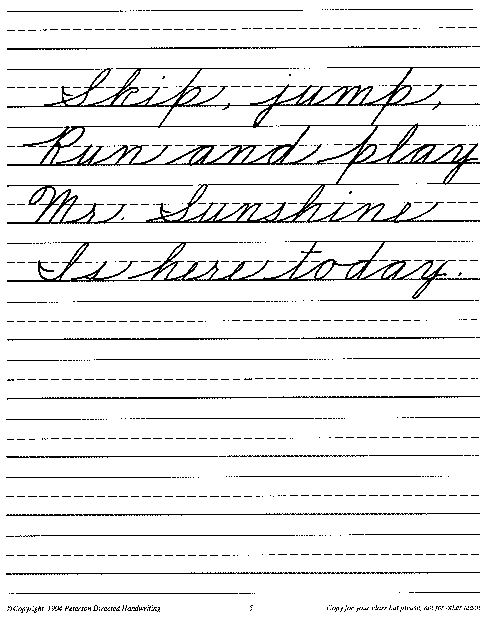 Skip, jump,
Run and play
Mr. Sunshine
Is here today.
©Copyright 1994 Peterson Directed Handwriting
5
Copy for your class but please, not for other